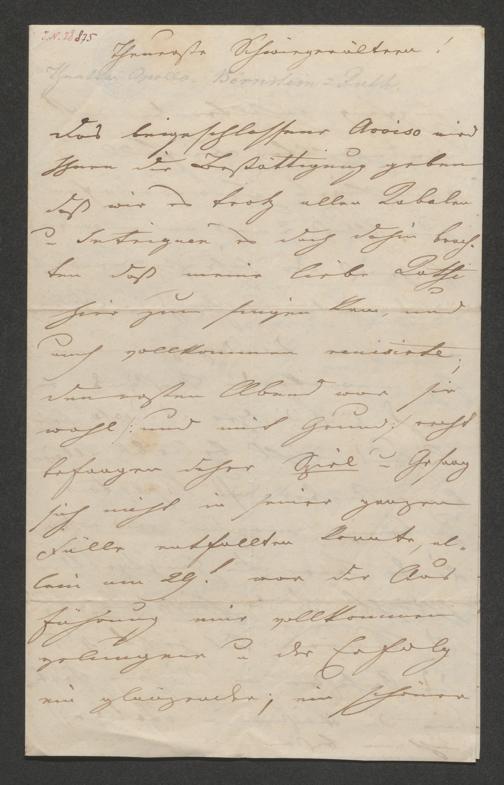 I.N. 28875
Theuerste Schwiegerältern!
Das beigeschlossene Avviso wird
Ihnen die Bestättigung geben
daß wir es trotz allen Kabalen
u Intriguen es doch dahin brach-
ten daß meine liebe Kathi
hier zum singen kam, und
auch vollkommen reusirte;
den ersten Abend war sie
wohl /: und mit Grund :/ recht
befangen daher Spiel u Gesang
sich nicht in seiner ganzen
Fülle entfallten konnte, al-
lein am 29t. war die Aus
führung eine vollkommen
gelungene u der Erfolg
ein glänzender; ein schöner